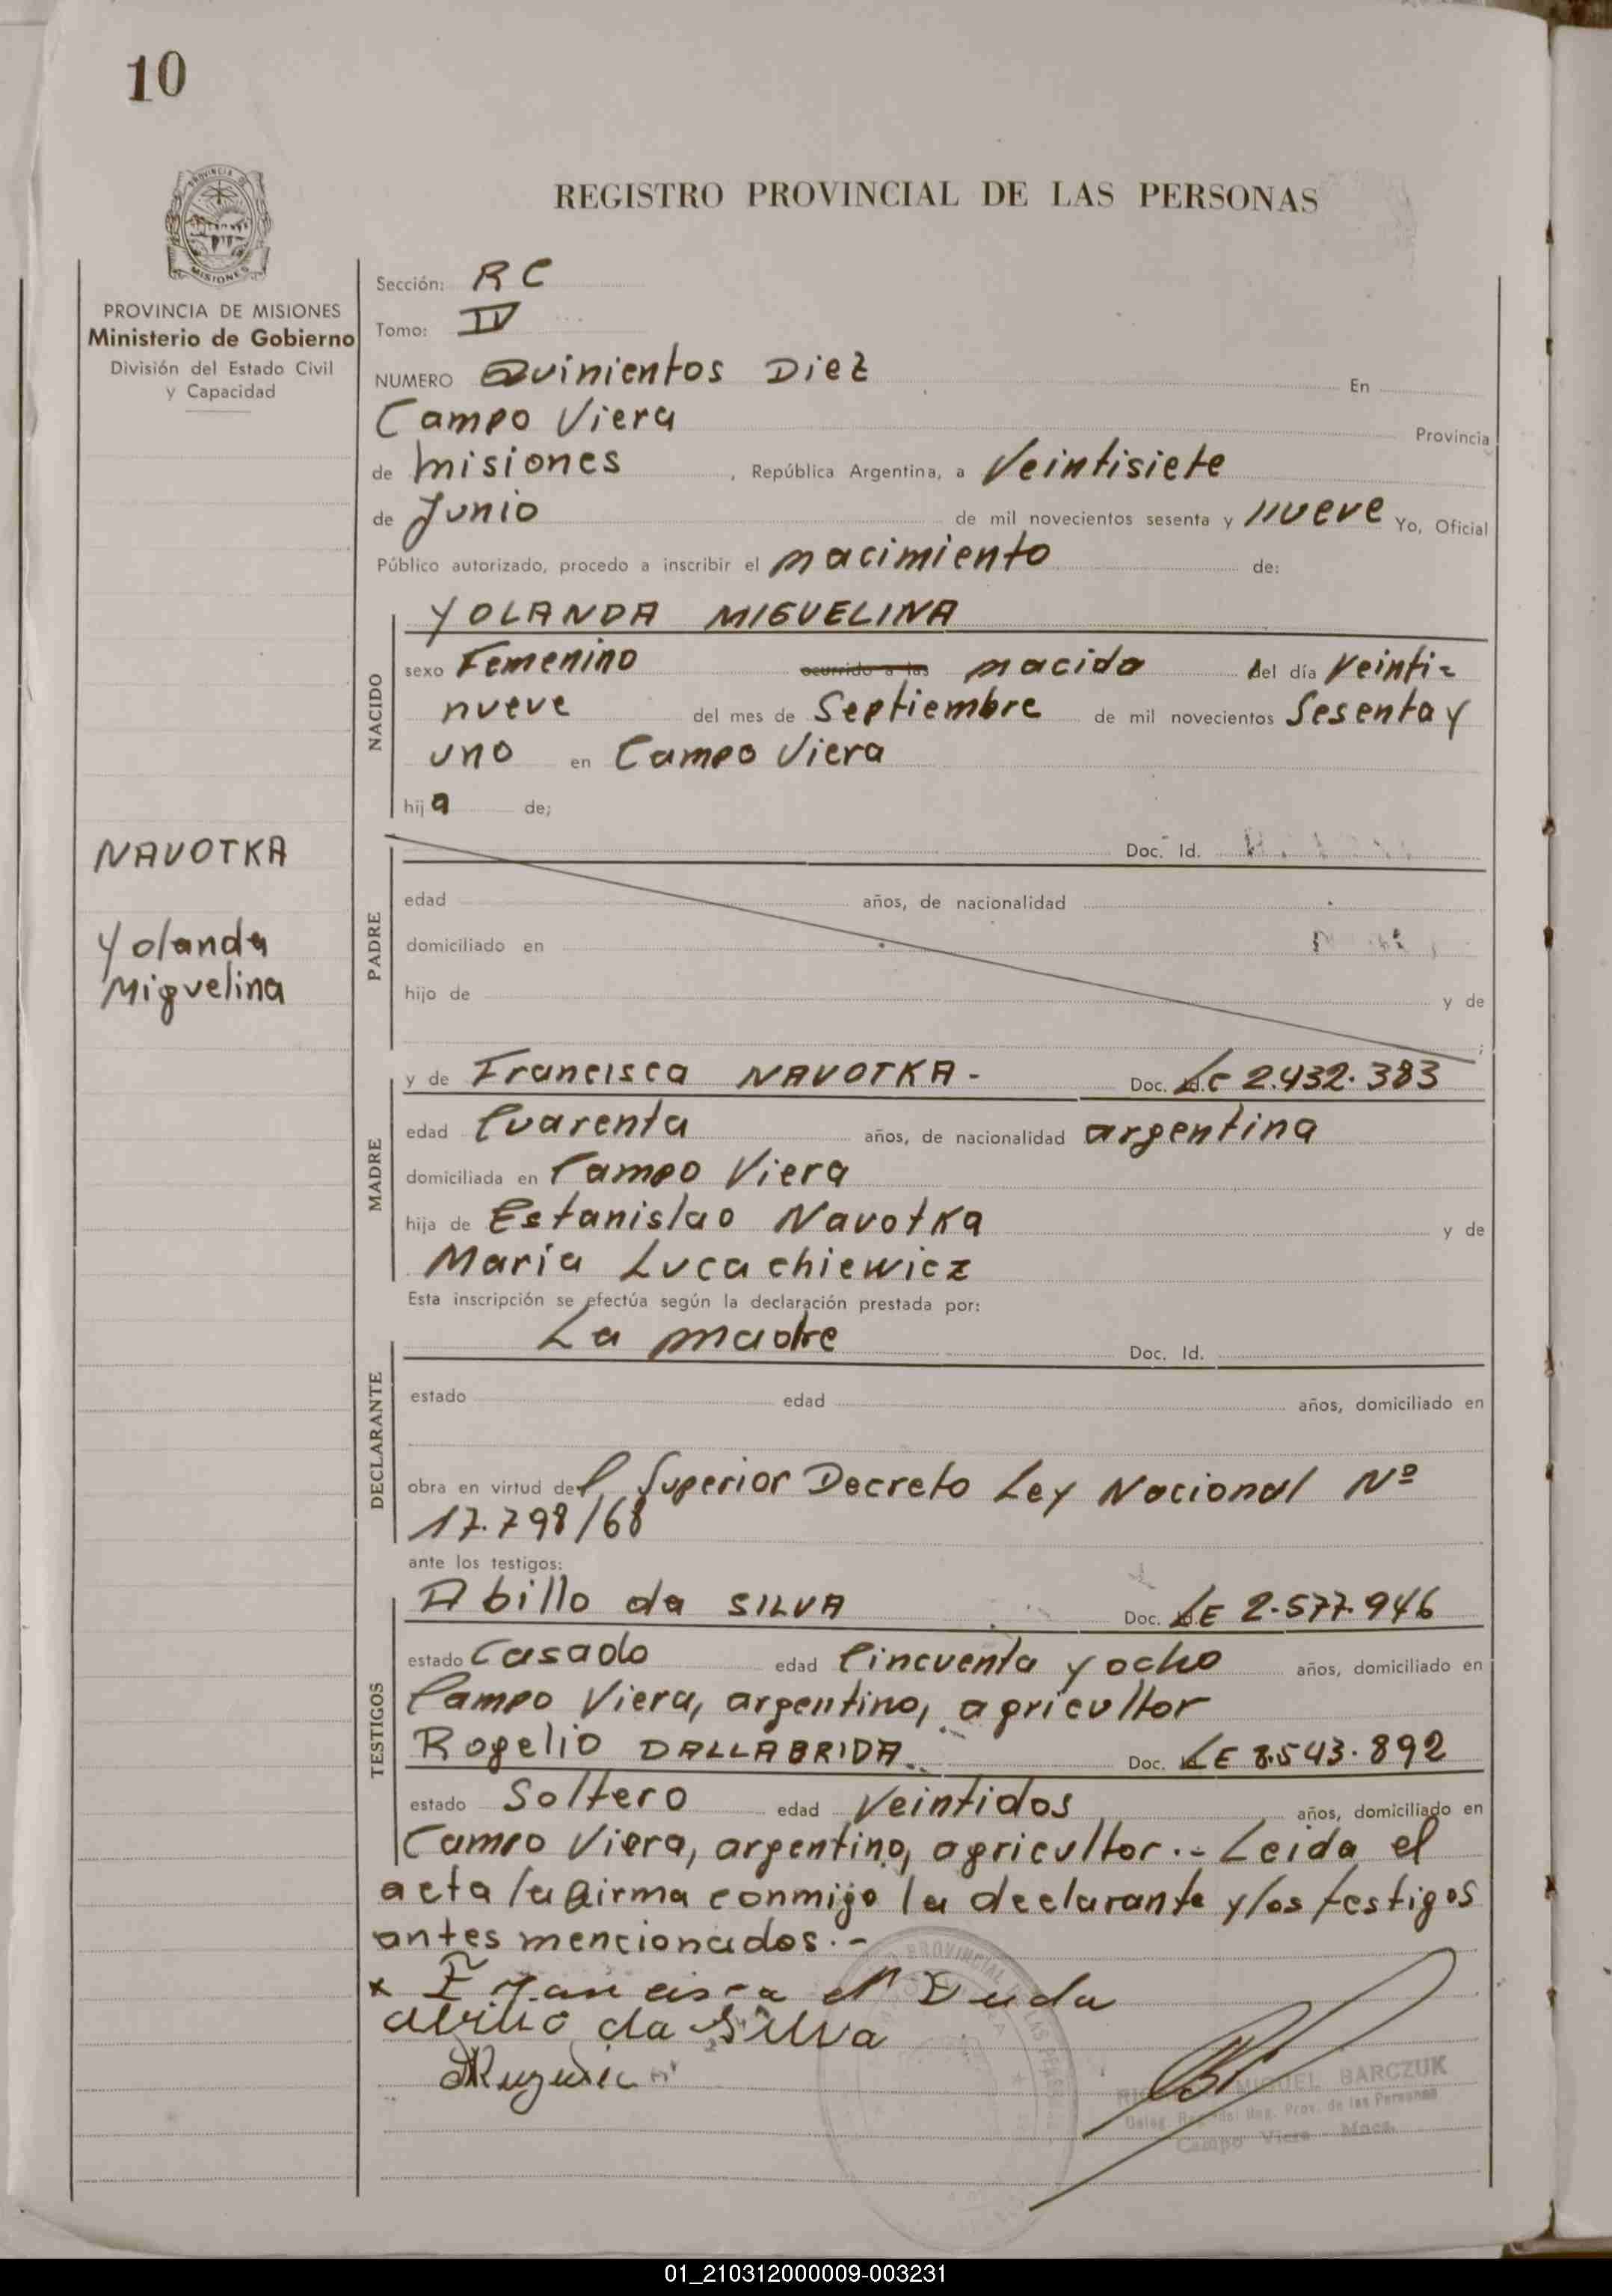 10
PROVINCIA DE MISIONES
PROVINCIA DE MISIONES
Ministerio de Gobierno
División del Estado Civil
y Capacidad
REGISTRO PROVINCIAL DE LAS PERSONAS
Sección: R C
Tomo: IV
NUMERO Quinientos Diez En
Campo Viera Provincia
de Misiones, República Argentina, a Veintisiete
de Junio de mil novecientos sesenta y nueve Yo, Oficial
Público autorizado, procedo a inscribir el nacimiento de:
NACIDO
YOLANDA MIGUELINA
sexo Femenino ocurrido a las nacida del día Veinti=
nueve del mes de Septiembre de mil novecientos Sesenta y
uno en Campo Viera
hija de;
NAVOTKA
Yolanda
Miguelina
PADRE
Doc. Id.
edad años, de nacionalidad
domiciliado en
hijo de y de
;
MADRE
y de Francisca NAVOTKA.- Doc. Id. LC 2.432.383
edad Cuarenta años, de nacionalidad argentina
domiciliada en Campo Viera
hija de Estanislao Navotka y de
María Lucachiewicz
Esta inscripción se efectúa según la declaración prestada por:
DECLARANTE
La madre Doc. Id.
estado edad años, domiciliado en
obra en virtud del Superior Decreto Ley Nacional Nº
17.798/68
ante los testigos:
TESTIGOS
Abilio da SILVA Doc. Id. LE 2.577.946
estado Casado edad Cincuenta y ocho años, domiciliado en
Campo Viera, argentino, agricultor
Rogelio DALLABRIDA Doc. Id. LE 8.543.892
estado Soltero edad Veintidos años, domiciliado en
Campo Viera, argentino, agricultor.- Leida el
acta la firma conmigo la declarante y los testigos
antes mencionados.-
x Francisca N Duda
abilio da Silva
MIGUEL BARCZUK
Deleg. Prov. de las Personas
Campo Viera - Mnes.
01_210312000009-003231